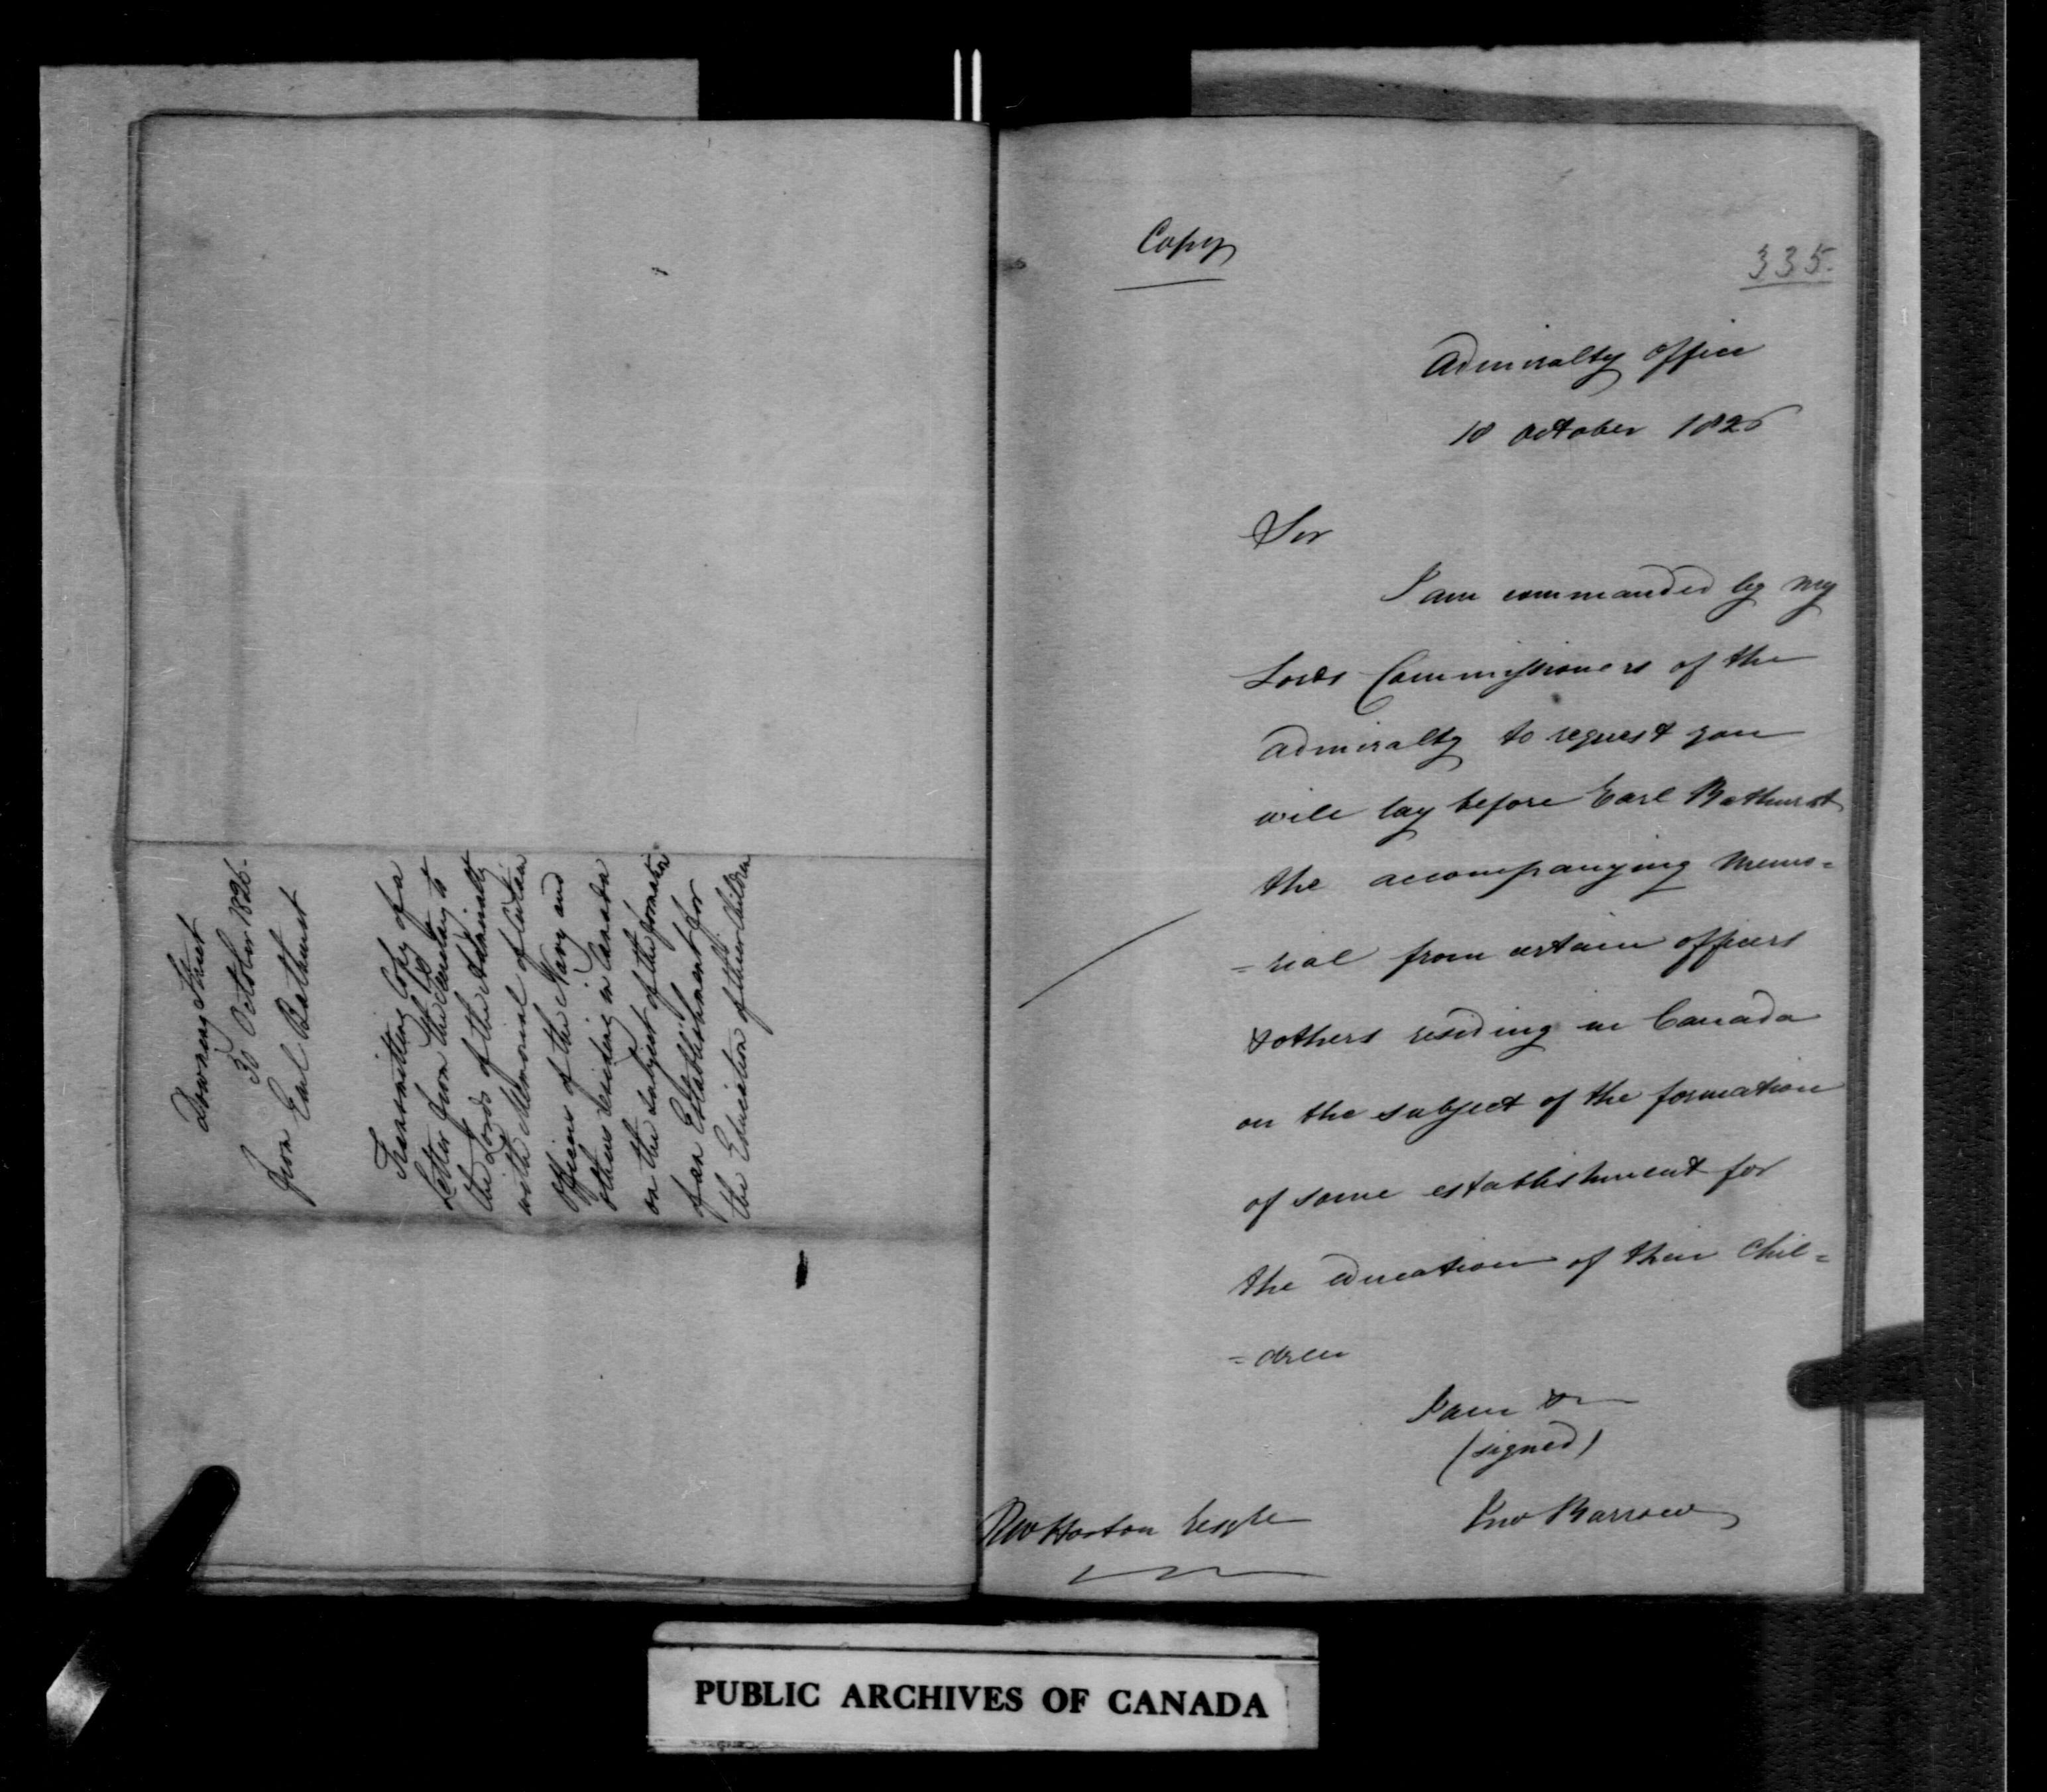 Downing Street
30 October 1826.
From Earl Bathurst
Transmitting Copy of a
Letter from the Secretary to
the Lords of the Admiralty
with Memorial of certain
Officers of the Navy and
others residing in Canada
on the subject of the formation
of an Establishment for
the Education of their Children
Copy
335.
Admiralty Office
18 October 1826
Sir
I am commanded by my
Lords Commissioners of the
Admiralty to request you
will lay before Earl Bathurst
the accompanying Memo=
=rial from certain officers
& others residing in Canada
on the subject of the formation
of some establishment for
the education of their Chil=
=dren
I am &c
(signed)
Jno Barrow
RW Horton Esqre
PUBLIC ARCHIVES OF CANADA